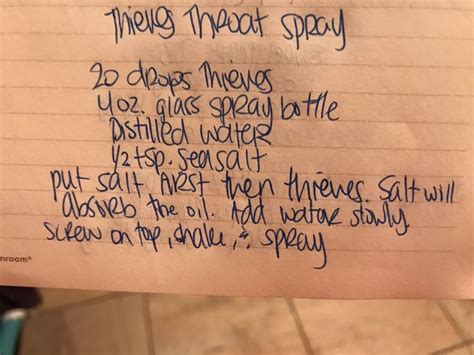 Thieves Throat Spray
20 drops Thieves
4oz. glass spray bottle
Distilled water
1/2 tsp. sea salt
put salt first then thieves. Salt will
absorb the oil. Add water slowly.
Screw on top, shake, & spray
nroom®